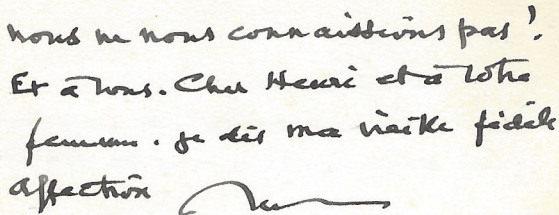 nous ne nous connaissions pas !
Et à vous. Cher Henri et à votre
femme. je dis ma vieille fidèle
affection